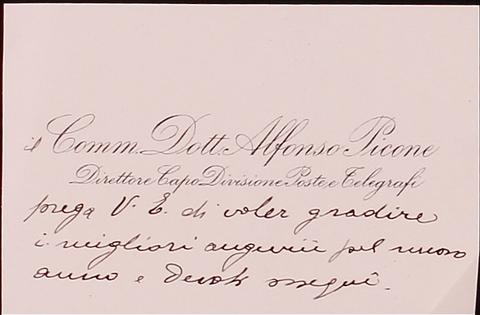 il Comm. Dott. Alfonso Picone
Direttore Capo Divisione Poste e Telegrafi
prega V. E. di voler gradire
i migliori augurii pel nuovo
anno e devoti ossequi.